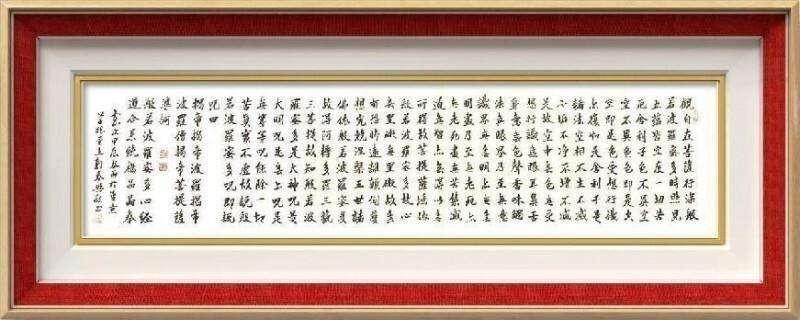 觀自在菩薩行深般
若波羅蜜多時照見
五蘊皆空度一切苦
厄舍利子色不異空
空不異色色即是空
空即是色受想行識
亦復如是舍利子是
諸法空相不生不滅
不垢不淨不增不減
是故空中無色無受
想行識無眼耳鼻舌
身意無色聲香味觸
法無眼界乃至無意
識界無無明亦無無
明盡乃至無老死亦
無老死盡無苦集滅
道無智亦無得以無
所得故菩提薩埵依
般若波羅蜜多故心
無罣礙無罣礙故無
有恐怖遠離顛倒夢
想究竟涅槃三世諸
佛依般若波羅蜜多
故得阿耨多羅三藐
三菩提故知般若波
羅蜜多是大神咒是
大明咒是無上咒是
無等等咒能除一切
苦真實不虛故說般
若波羅蜜多咒即說
咒曰
揭帝揭帝波羅揭帝
波羅僧揭帝菩提薩
婆訶
般若波羅蜜多心經
歲次甲辰